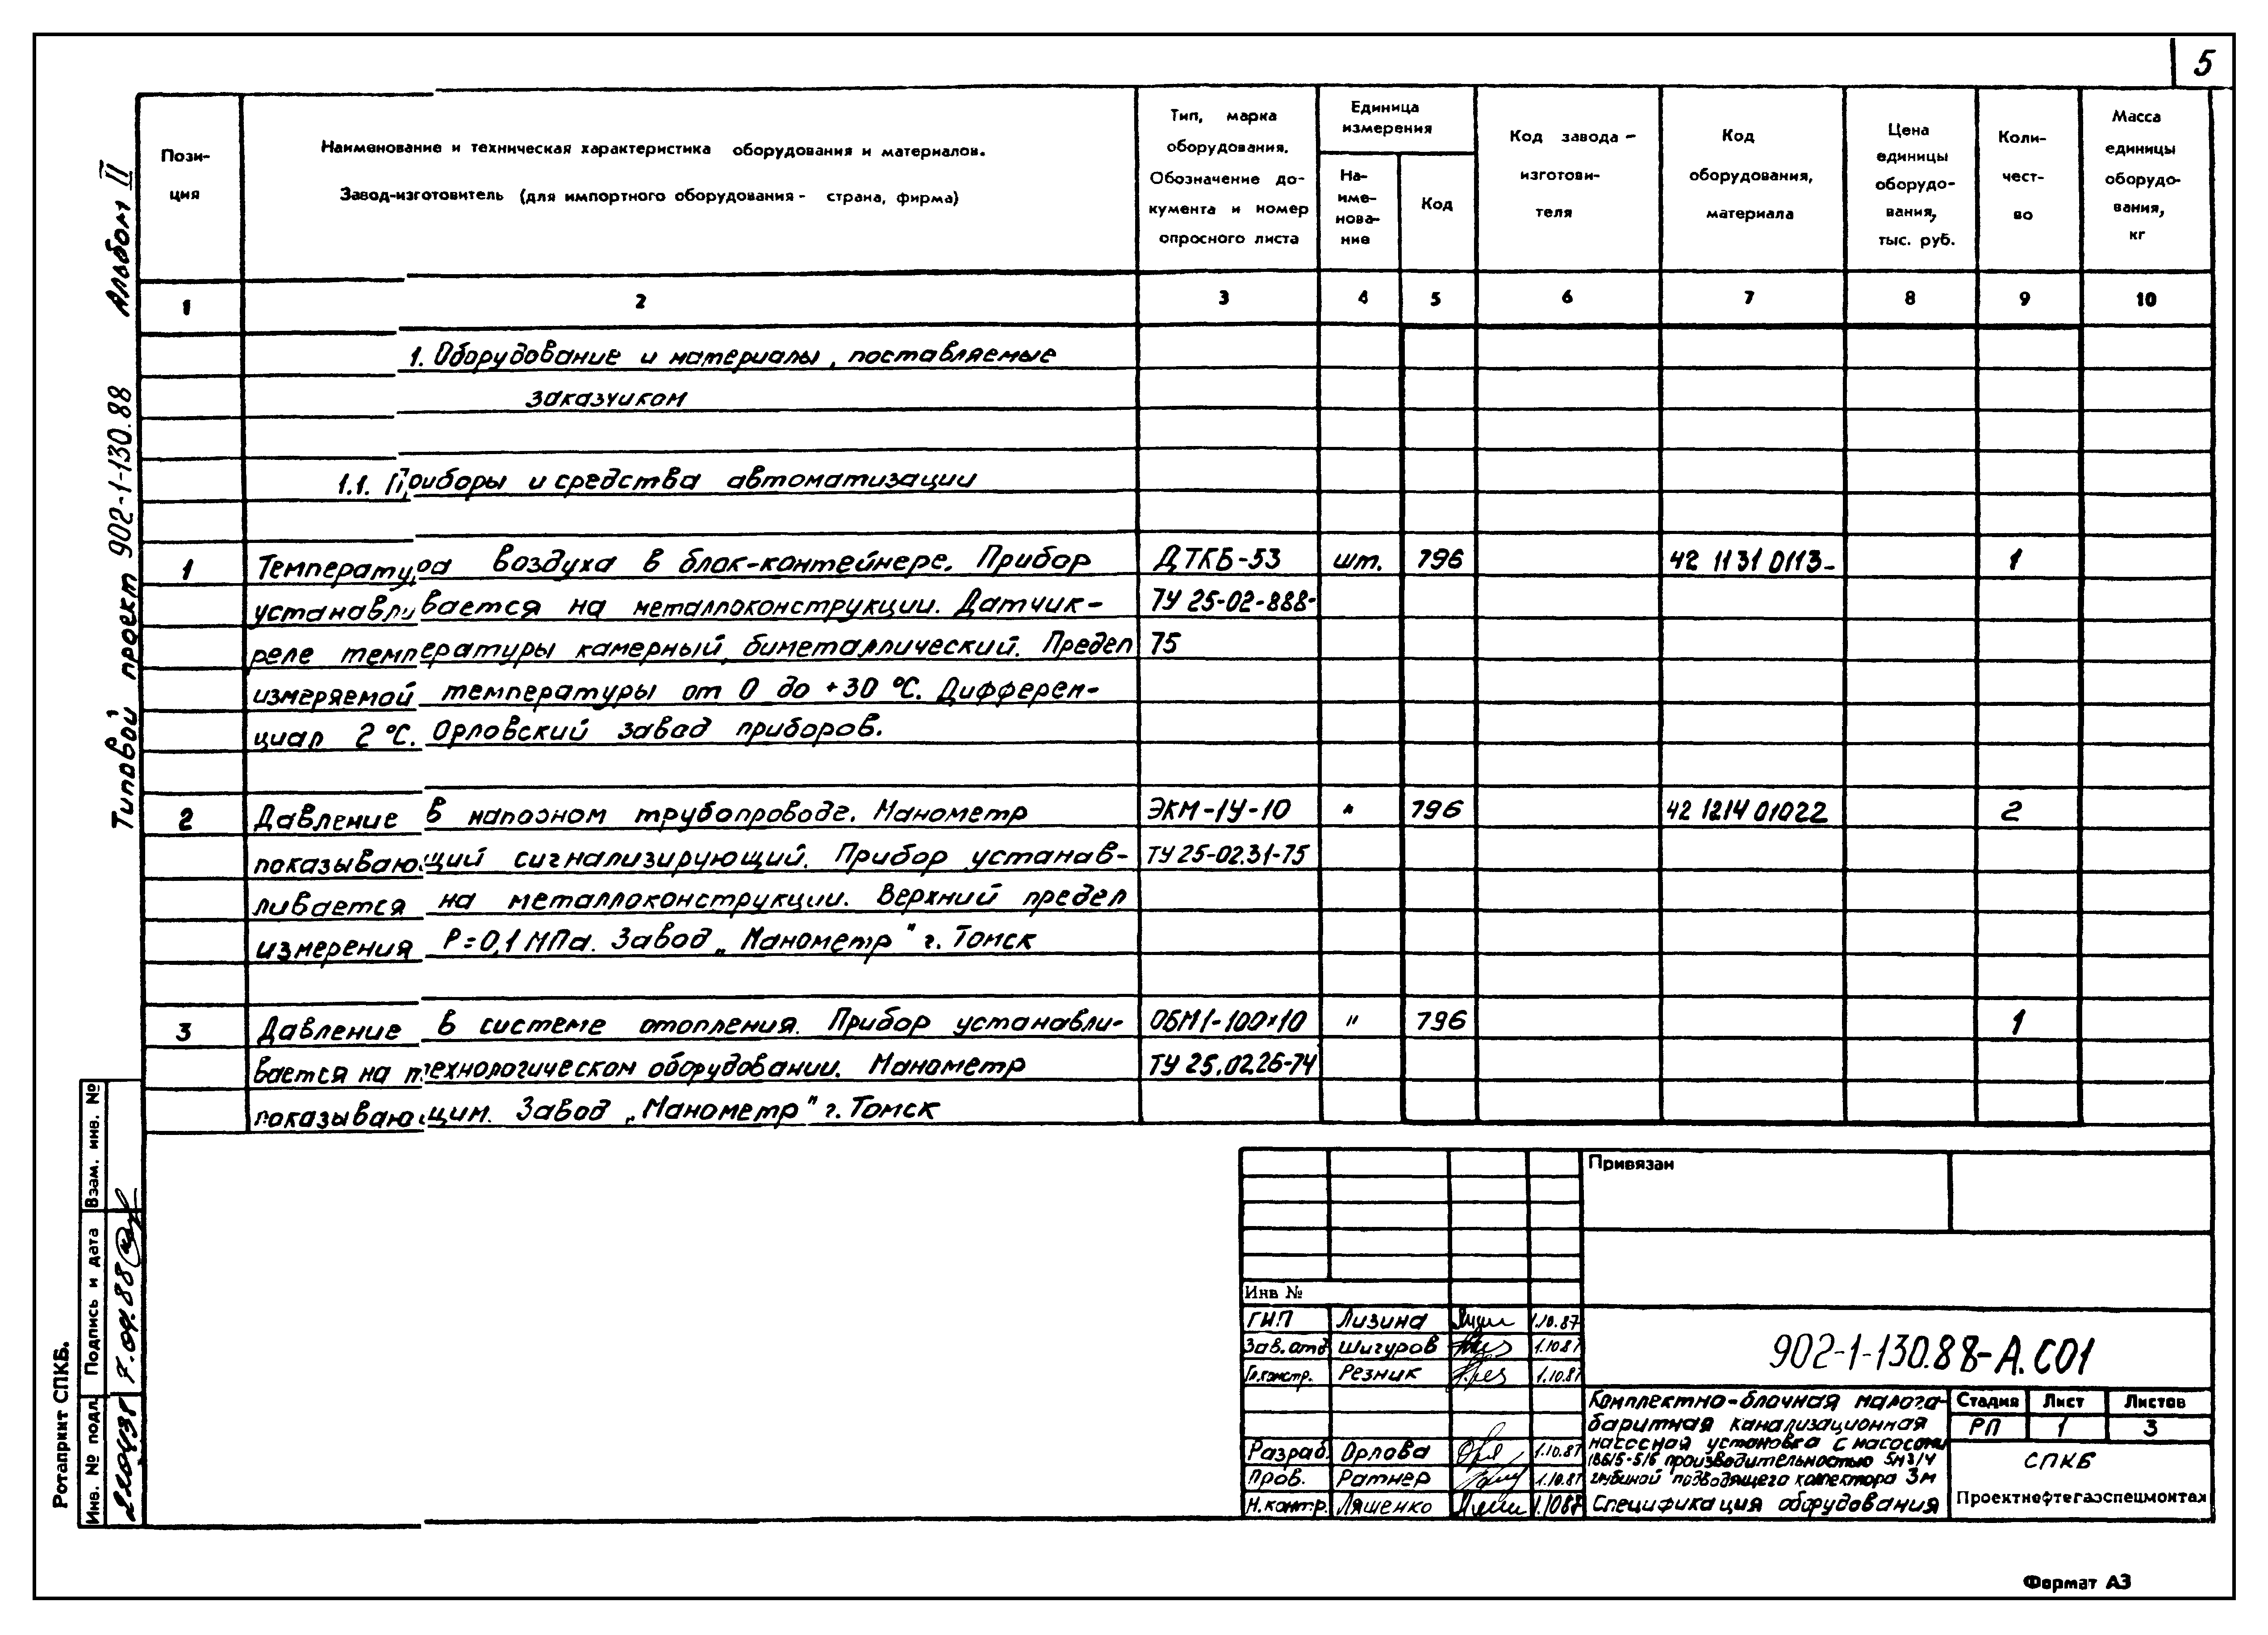 5
Альбом II
Типовой проект 902-1-130.88
Пози-
ция
Наименование и техническая характеристика оборудования и материалов.
Завод-изготовитель (для импортного оборудования - страна, фирма)
Тип, марка
оборудования.
Обозначение до-
кумента и номер
опросного листа
Единица
измерения
На-
име-
нова-
ние
Код
Код завода-
изготови-
теля
Код
оборудования,
материала
Цена
единицы
оборудо-
вания,
тыс. руб.
Коли-
чест-
во
Масса
единицы
оборудо-
вания,
кг
1 2 3 4 5 6 7 8 9 10
1. Оборудование и материалы, поставляемые
заказчиком
1.1. Приборы и средства автоматизации
1 Температура воздуха в блок-контейнере. Прибор ДТКБ-53 шт. 796 42 1131 0113- 1
устанавливается на металлоконструкции. Датчик- ТУ 25-02-888-
реле температуры камерный, биметаллический. Предел 75
измеряемой температуры от 0 до +30 °С. Дифферен-
циал 2 °С. Орловский завод приборов.
2 Давление в напорном трубопроводе. Манометр ЭКМ-1У-10 " 796 42 1214 01022 2
показывающий сигнализирующий. Прибор устанав- ТУ 25-02.31-75
ливается на металлоконструкции. Верхний предел
измерения Р=0,1 МПа. Завод „Манометр" г. Томск
3 Давление в системе отопления. Прибор устанавли- ОБМ1-100×10 " 796 1
вается на технологическом оборудовании. Манометр ТУ 25.02.26-74
показывающим. Завод „Манометр" г. Томск
Привязан
Инв №
ГИП Лизина 1.10.87
Зав.отд Шигуров 1.10.87
Гл.констр. Резник 1.10.87
Разраб. Орлова 1.10.87
Пров. Ратнер 1.10.87
Н.контр. Ляшенко 1.10.87
902-1-130.88-А.СО1
Комплектно-блочная малога-
баритная канализационная
насосная установка с насосами
производительностью 5м3/ч
глубиной подводящего коллектора 3м
Спецификация оборудования
Стадия Лист Листов
РП 1 3
СПКБ
Проектнефтегазспецмонтаж
Взам. инв. №
Подпись и дата
Инв. № подл.
Ротапринт СПКБ.
Формат А3